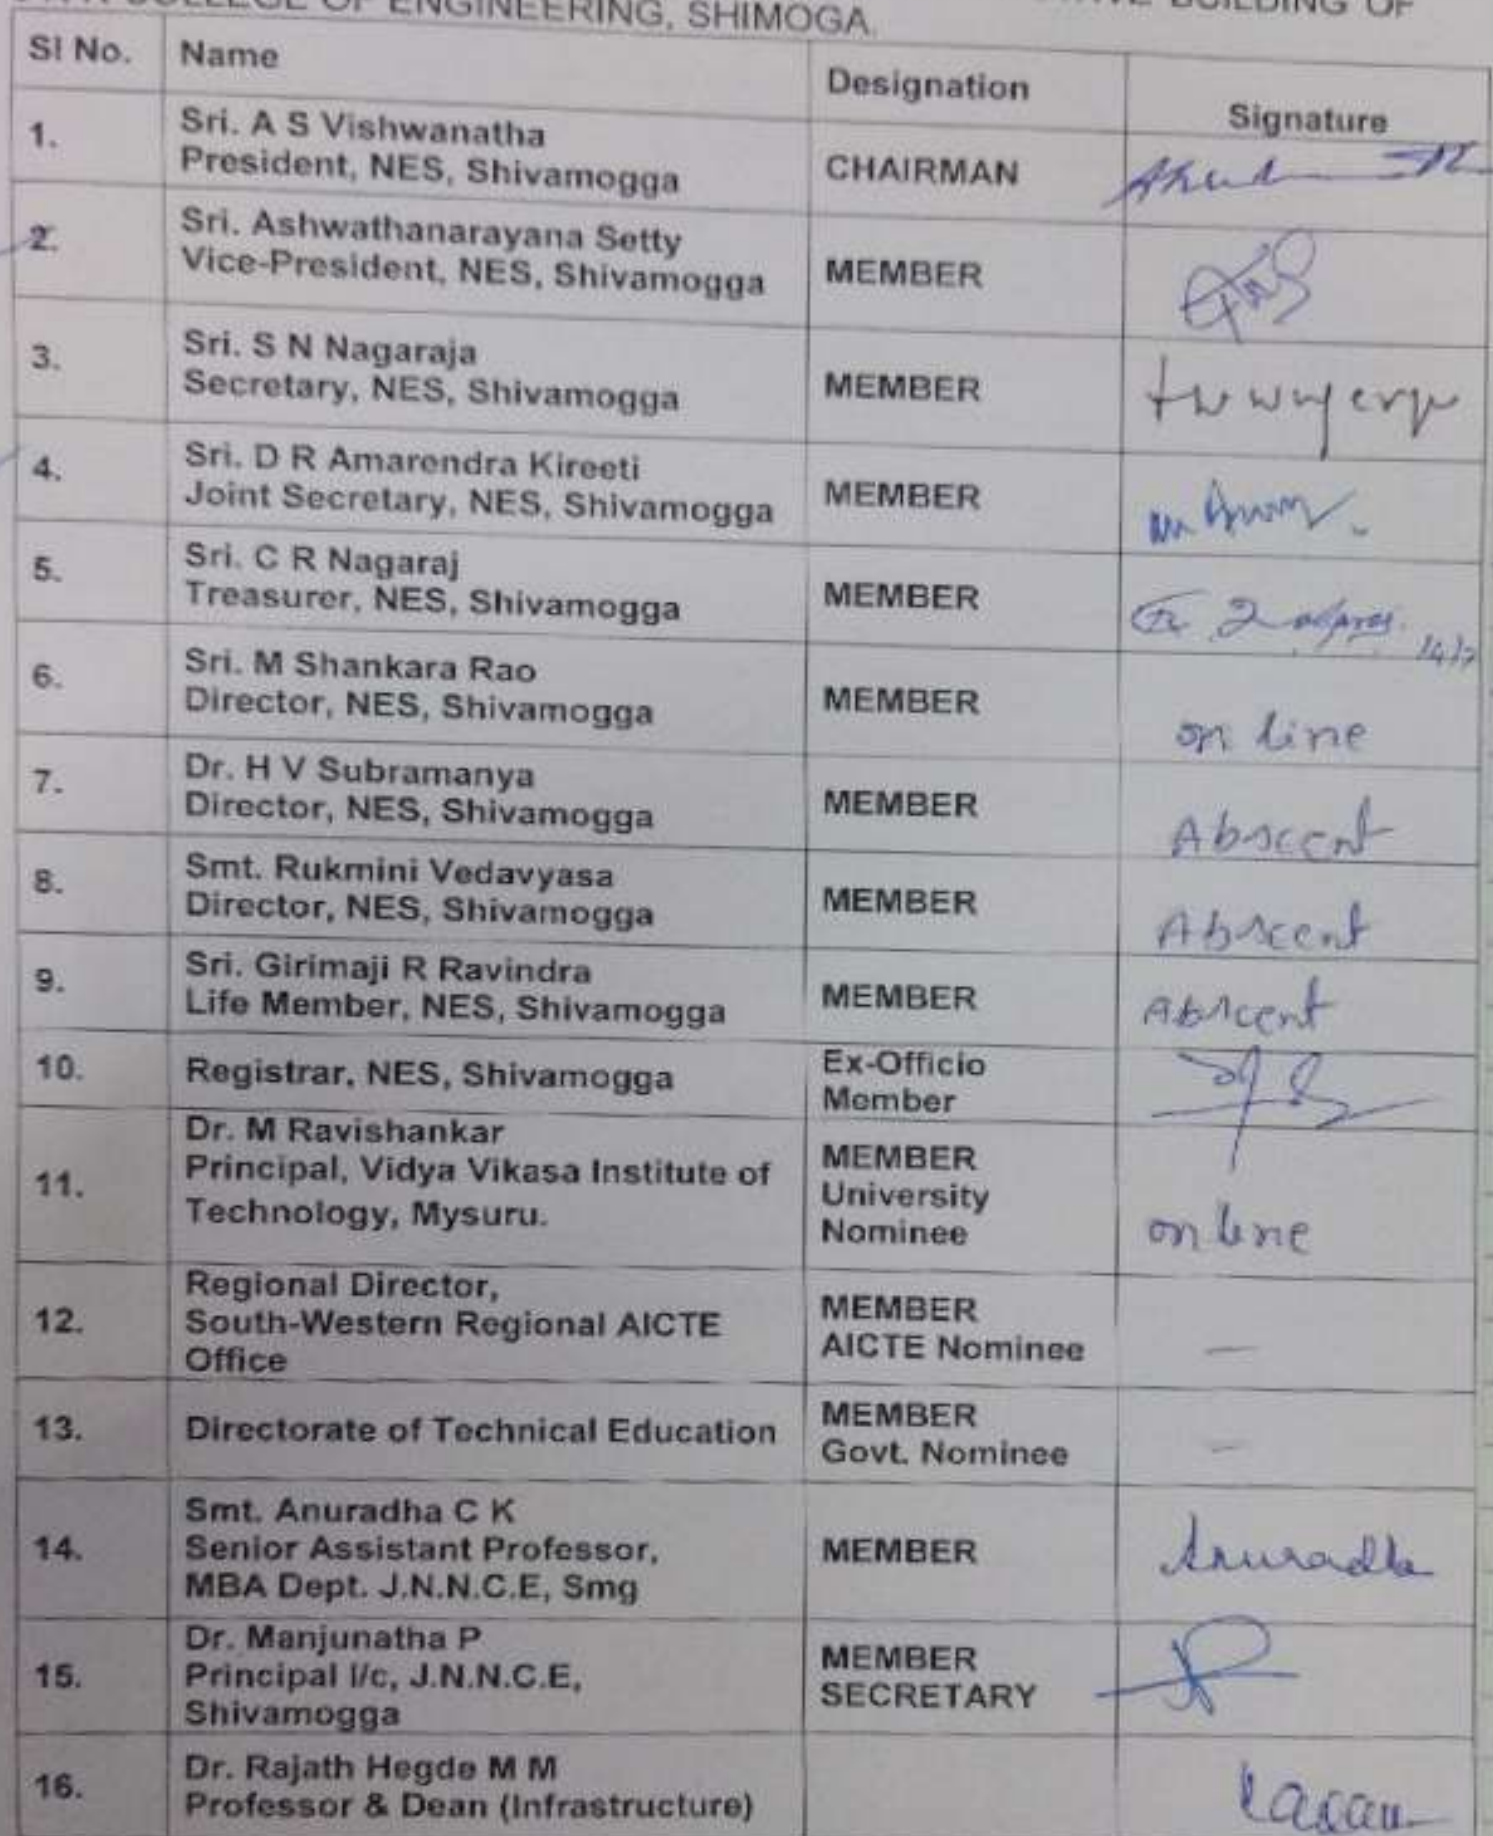 COLLEGE OF ENGINEERING, SHIMOGA.
BUILDING OF
Sl No. Name Designation Signature
1. Sri. A S Vishwanatha
President, NES, Shivamogga CHAIRMAN
2. Sri. Ashwathanarayana Setty
Vice-President, NES, Shivamogga MEMBER
3. Sri. S N Nagaraja
Secretary, NES, Shivamogga MEMBER
4. Sri. D R Amarendra Kireeti
Joint Secretary, NES, Shivamogga MEMBER
5. Sri. C R Nagaraj
Treasurer, NES, Shivamogga MEMBER
6. Sri. M Shankara Rao
Director, NES, Shivamogga MEMBER
on line
7. Dr. H V Subramanya
Director, NES, Shivamogga MEMBER
Abscent
8. Smt. Rukmini Vedavyasa
Director, NES, Shivamogga MEMBER
Abscent
9. Sri. Girimaji R Ravindra
Life Member, NES, Shivamogga MEMBER Abscent
10. Registrar, NES, Shivamogga Ex-Officio
Member
11. Dr. M Ravishankar
Principal, Vidya Vikasa Institute of
Technology, Mysuru.
MEMBER
University
Nominee on line
12. Regional Director,
South-Western Regional AICTE
Office
MEMBER
AICTE Nominee —
13. Directorate of Technical Education MEMBER
Govt. Nominee —
14. Smt. Anuradha C K
Senior Assistant Professor,
MBA Dept. J.N.N.C.E, Smg
MEMBER Anuradha
15. Dr. Manjunatha P
Principal I/c, J.N.N.C.E,
Shivamogga
MEMBER
SECRETARY
16. Dr. Rajath Hegde M M
Professor & Dean (Infrastructure)